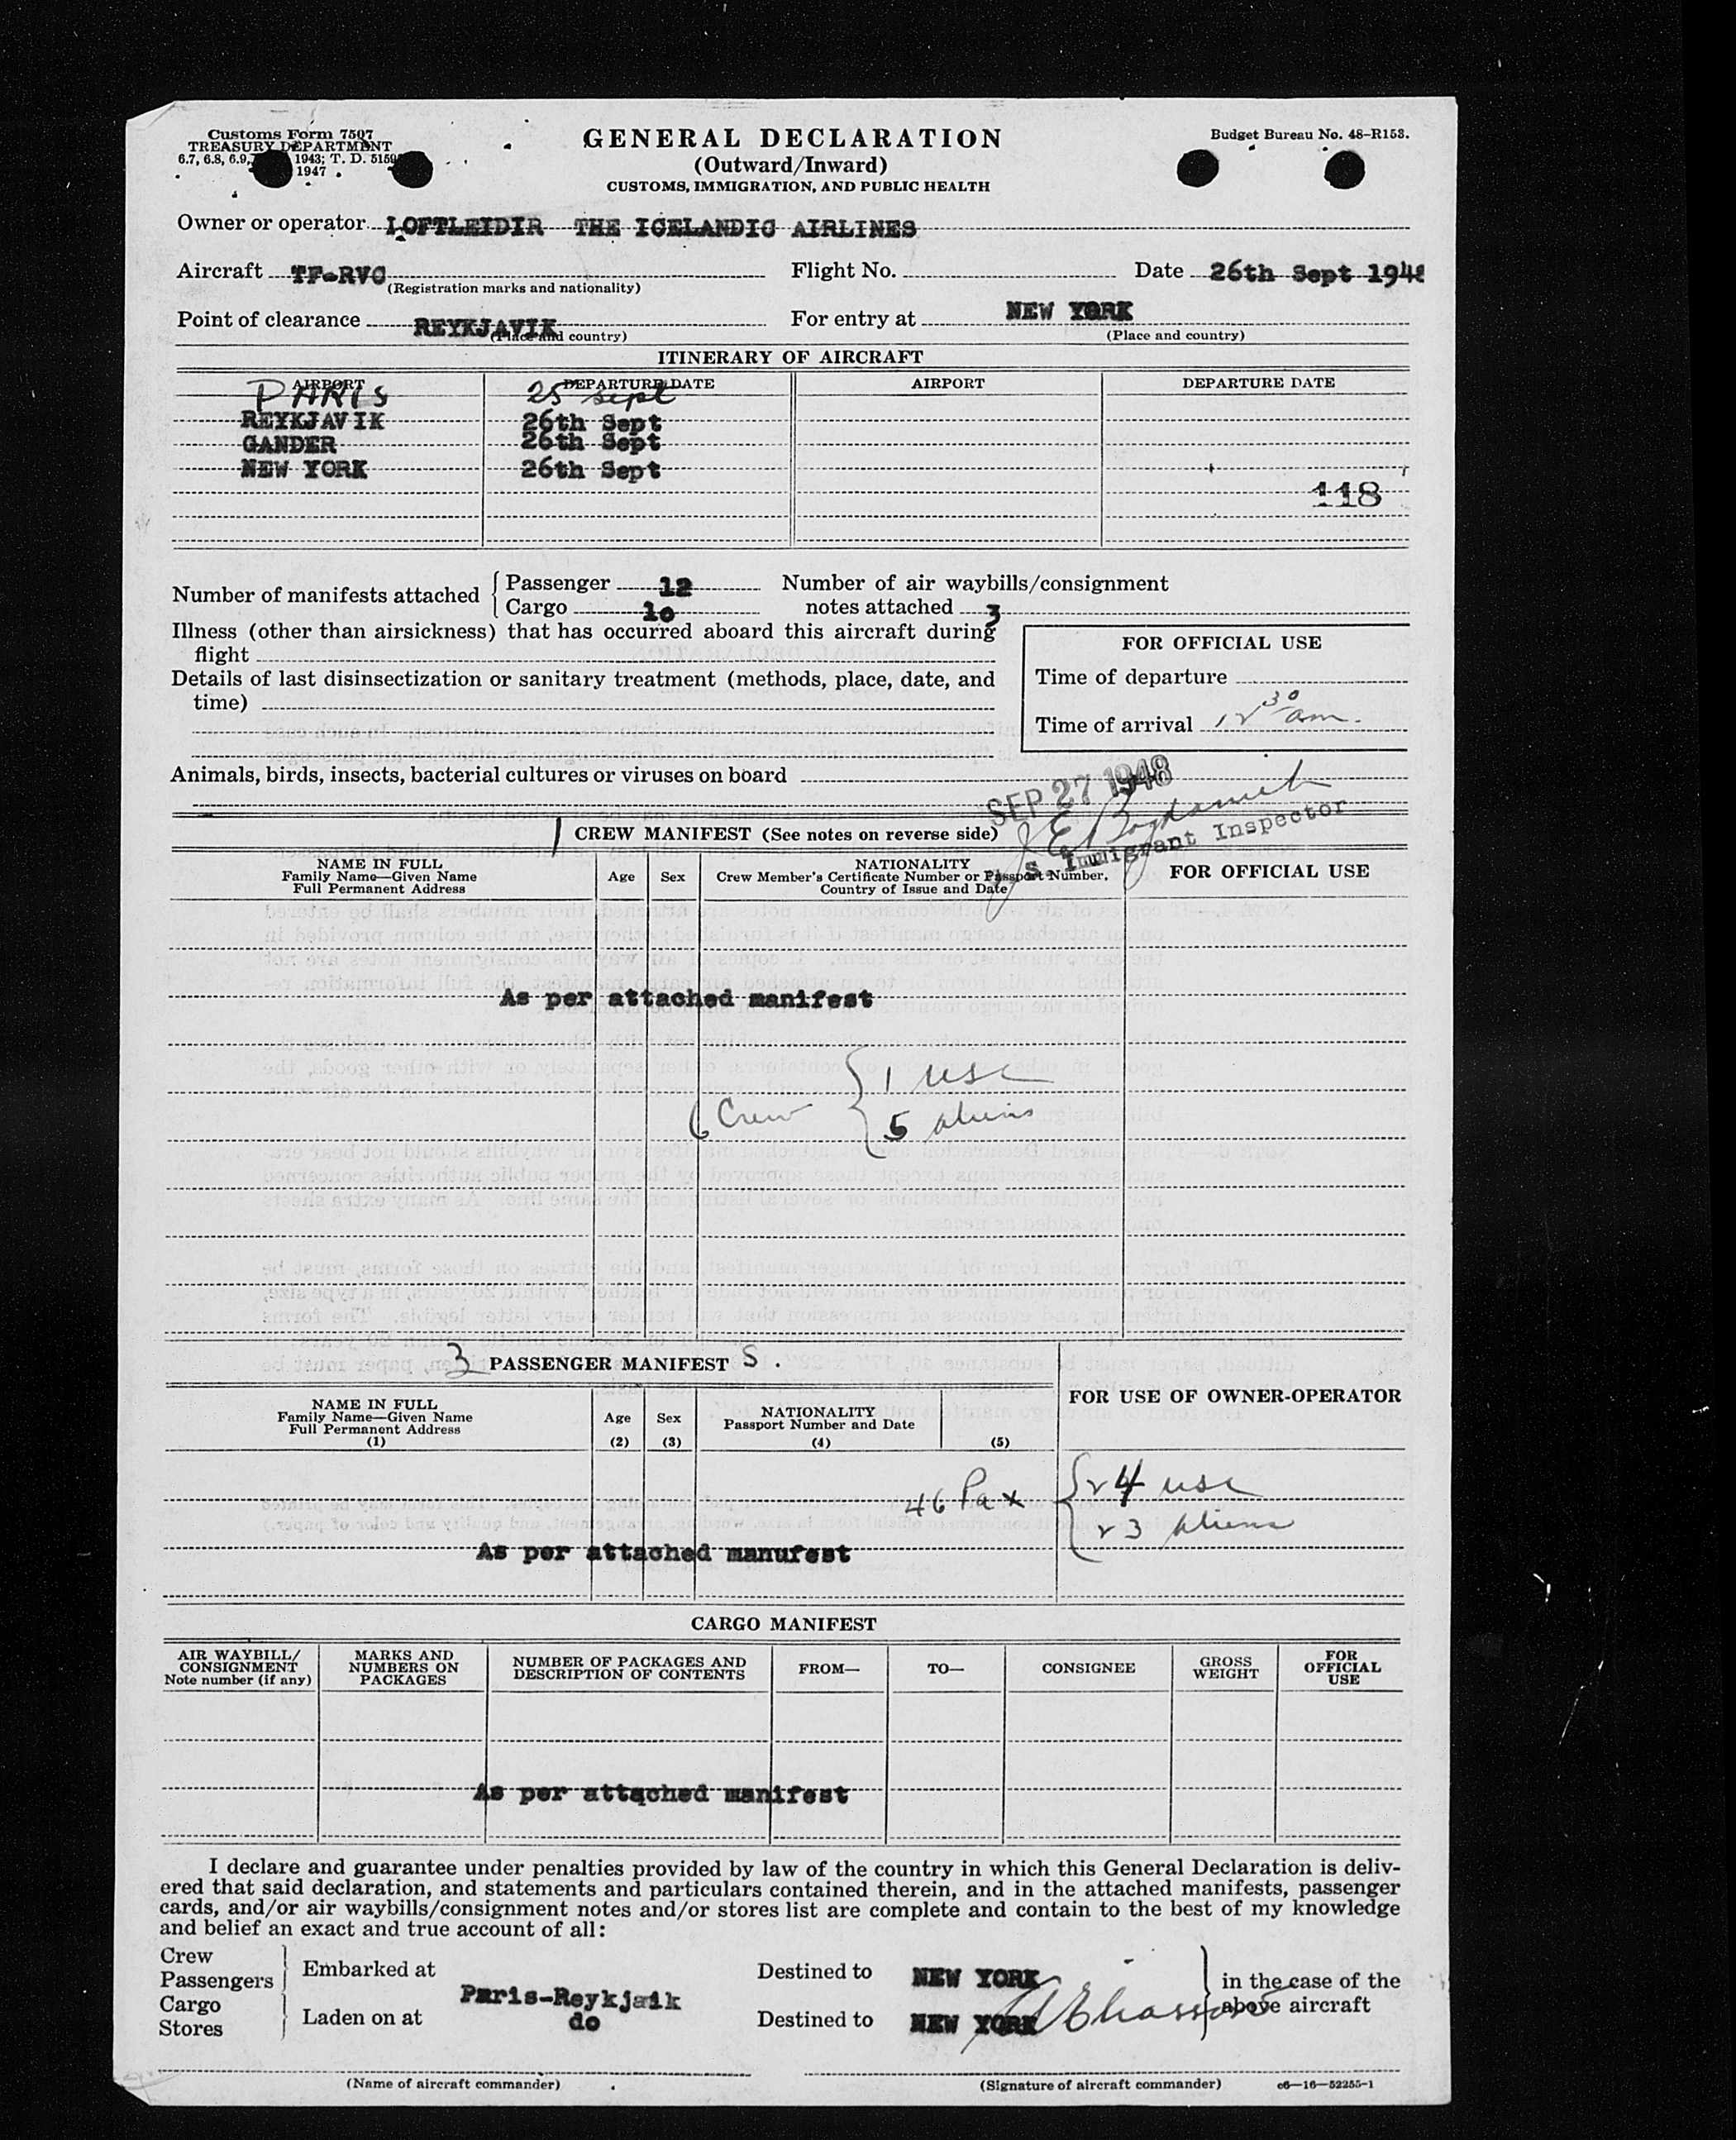 Customs Form 7507
TREASURY DEPARTMENT
6.7, 6.8, 6.9, 1943; T. D. 5159
1947
GENERAL DECLARATION
(Outward/Inward)
CUSTOMS, IMMIGRATION, AND PUBLIC HEALTH
Budget Bureau No. 48–R153.
Owner or operator LOFTLEIDIR THE ICELANDIC AIRLINES
Aircraft TF-RVC Flight No. Date 26th Sept 1948
(Registration marks and nationality)
Point of clearance REYKJAVIK For entry at NEW YORK
(Place and country) (Place and country)
ITINERARY OF AIRCRAFT
AIRPORT DEPARTURE DATE AIRPORT DEPARTURE DATE
PARIS 25 Sept
REYKJAVIK 26th Sept
GANDER 26th Sept
NEW YORK 26th Sept
118
Number of manifests attached { Passenger 12 Number of air waybills/consignment
Cargo 10 notes attached 3
Illness (other than airsickness) that has occurred aboard this aircraft during
flight
FOR OFFICIAL USE
Details of last disinsectization or sanitary treatment (methods, place, date, and
time)
Time of departure
Time of arrival 12 30 am.
Animals, birds, insects, bacterial cultures or viruses on board
SEP 27 1948
1 CREW MANIFEST (See notes on reverse side)
S. Immigrant Inspector
NAME IN FULL
Family Name—Given Name
Full Permanent Address
Age Sex
NATIONALITY
Crew Member's Certificate Number or Passport Number,
Country of Issue and Date
FOR OFFICIAL USE
As per attached manifest
6 Crew { 1 USC
5 aliens
3 PASSENGER MANIFEST S.
FOR USE OF OWNER-OPERATOR
NAME IN FULL
Family Name—Given Name
Full Permanent Address
(1)
Age
(2)
Sex
(3)
NATIONALITY
Passport Number and Date
(4) (5)
46 Pax { 24 USC
23 aliens
As per attached manufest
CARGO MANIFEST
AIR WAYBILL/
CONSIGNMENT
Note number (if any)
MARKS AND
NUMBERS ON
PACKAGES
NUMBER OF PACKAGES AND
DESCRIPTION OF CONTENTS
FROM—
TO—
CONSIGNEE
GROSS
WEIGHT
FOR
OFFICIAL
USE
As per attached manifest
I declare and guarantee under penalties provided by law of the country in which this General Declaration is deliv-
ered that said declaration, and statements and particulars contained therein, and in the attached manifests, passenger
cards, and/or air waybills/consignment notes and/or stores list are complete and contain to the best of my knowledge
and belief an exact and true account of all:
Crew
Passengers
Cargo
Stores
Embarked at Paris-Reykjaik Destined to NEW YORK
Laden on at do Destined to NEW YORK
in the case of the
above aircraft
(Name of aircraft commander) (Signature of aircraft commander) c6—16—52255-1